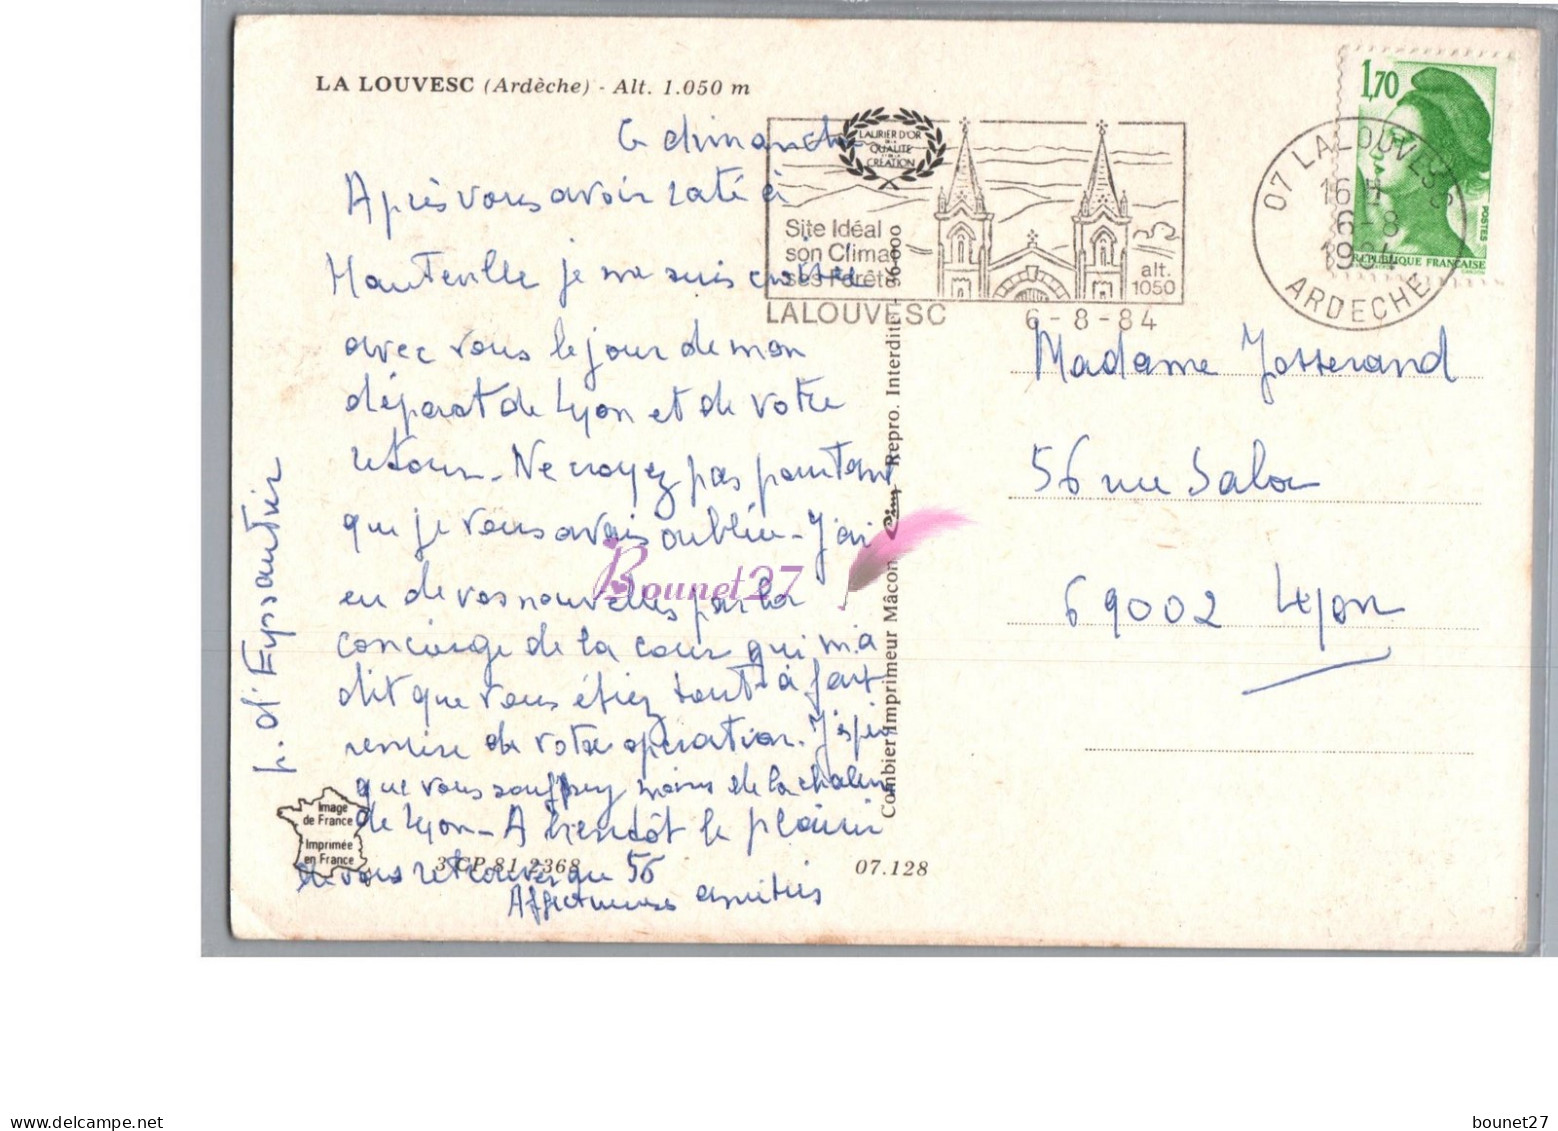 LA LOUVESC (Ardèche) - Alt. 1.050 m
Ce dimanche
Après vous avoir raté à
Hauteville je me suis croisée
avec vous le jour de mon
départ de Lyon et de votre
retour. Ne croyez pas pourtant
que je vous avais oubliée - J'ai
eu de vos nouvelles par la
concierge de la cour qui m'a
dit que vous étiez tout à fait
remise de votre opération. J'espère
que vous souffrez moins de la chaleur
de Lyon - A bientôt le plaisir
de vous retrouver au 56
Affectueuses amitiés
L. d'Eyssautier
Image
de France
Imprimée
en France
3 CP 81 2368
07.128
Combier Imprimeur Mâcon Cim Repro. Interdite - 36-000
LAURIER D'OR
DE LA
QUALITÉ
ET DE LA
CRÉATION
Site Idéal
son Climat
ses Forêts
alt.
1050
LALOUVESC 6-8-84
07 LALOUVESC
16 H
6-8
1984
ARDECHE
1,70
POSTES
REPUBLIQUE FRANÇAISE
Madame Josserand
56 rue Sala
69002 Lyon
Bounet27
delcampe.net
bounet27